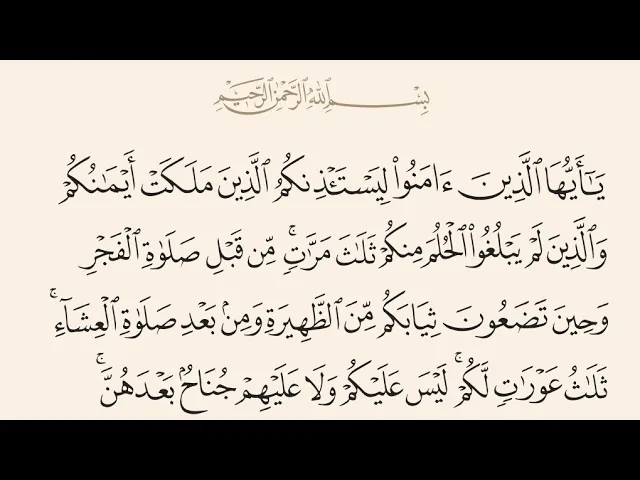 بِسْمِ ٱللَّهِ ٱلرَّحْمَٰنِ ٱلرَّحِيمِ
يَـٰٓأَيُّهَا ٱلَّذِينَ ءَامَنُوا۟ لِيَسْتَـْٔذِنكُمُ ٱلَّذِينَ مَلَكَتْ أَيْمَـٰنُكُمْ
وَٱلَّذِينَ لَمْ يَبْلُغُوا۟ ٱلْحُلُمَ مِنكُمْ ثَلَـٰثَ مَرَّٰتٍ ۚ مِّن قَبْلِ صَلَوٰةِ ٱلْفَجْرِ
وَحِينَ تَضَعُونَ ثِيَابَكُم مِّنَ ٱلظَّهِيرَةِ وَمِنۢ بَعْدِ صَلَوٰةِ ٱلْعِشَآءِ ۚ
ثَلَـٰثُ عَوْرَٰتٍ لَّكُمْ ۚ لَيْسَ عَلَيْكُمْ وَلَا عَلَيْهِمْ جُنَاحٌۢ بَعْدَهُنَّ ۚ